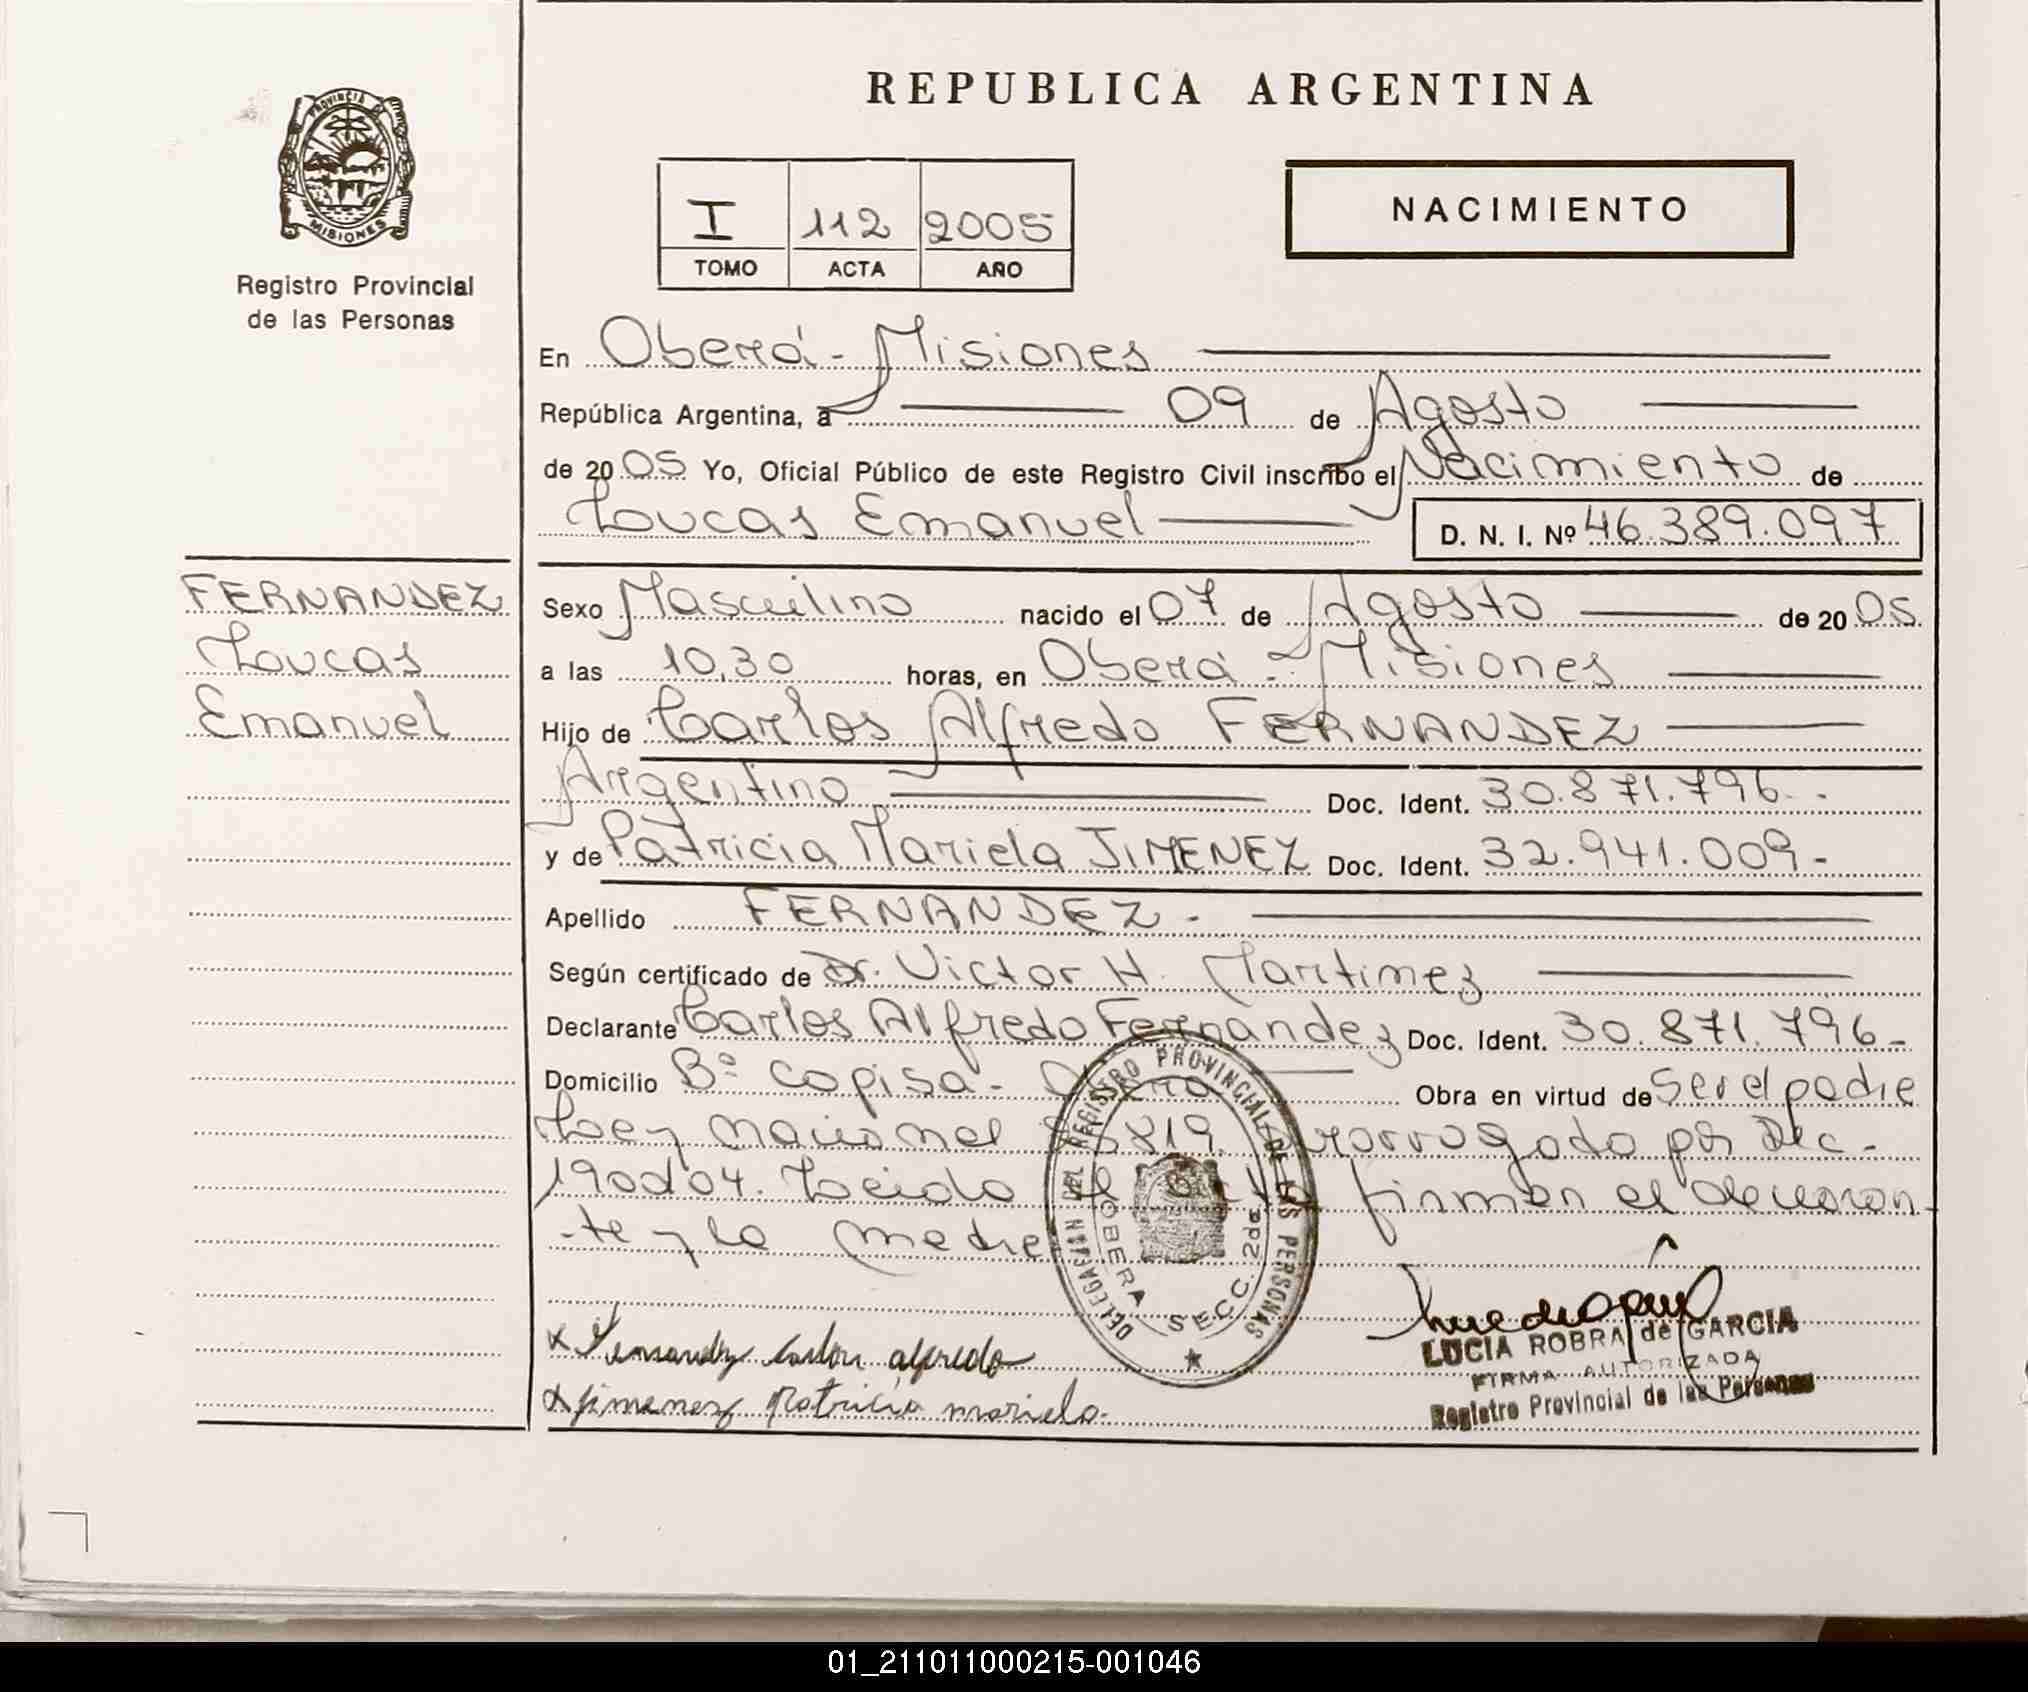 REPUBLICA ARGENTINA
PROVINCIA DE
MISIONES
Registro Provincial
de las Personas
I 112 2005
TOMO ACTA AÑO
NACIMIENTO
En Oberá - Misiones
República Argentina, a 09 de Agosto
de 2005 Yo, Oficial Público de este Registro Civil inscribo el Nacimiento de
Loucas Emanuel D. N. I. Nº 46.389.097
FERNANDEZ
Loucas
Emanuel
Sexo Masculino nacido el 07 de Agosto de 2005
a las 10,30 horas, en Oberá - Misiones
Hijo de Carlos Alfredo FERNANDEZ
Argentino Doc. Ident. 30.871.796-
y de Patricia Mariela JIMENEZ Doc. Ident. 32.941.009-
Apellido FERNANDEZ -
Según certificado de Dr. Victor H. Martinez
Declarante Carlos Alfredo Fernandez Doc. Ident. 30.871.796-
Domicilio Bº Copisa - Obera Obra en virtud de Ser el padre
Ley nacional 819 Prorrogado por Dec-
190d04. Leido el acta firman el declaran-
te y la madre
DELEGACION DEL REGISTRO PROVINCIAL DE LAS PERSONAS
OBERA SECC. 2da.
x Fernandez Carlos alfredo
x Jimenez Patricia mariela.
LUCIA ROBRA de GARCIA
FIRMA AUTORIZADA
Registro Provincial de las Personas
01_211011000215-001046